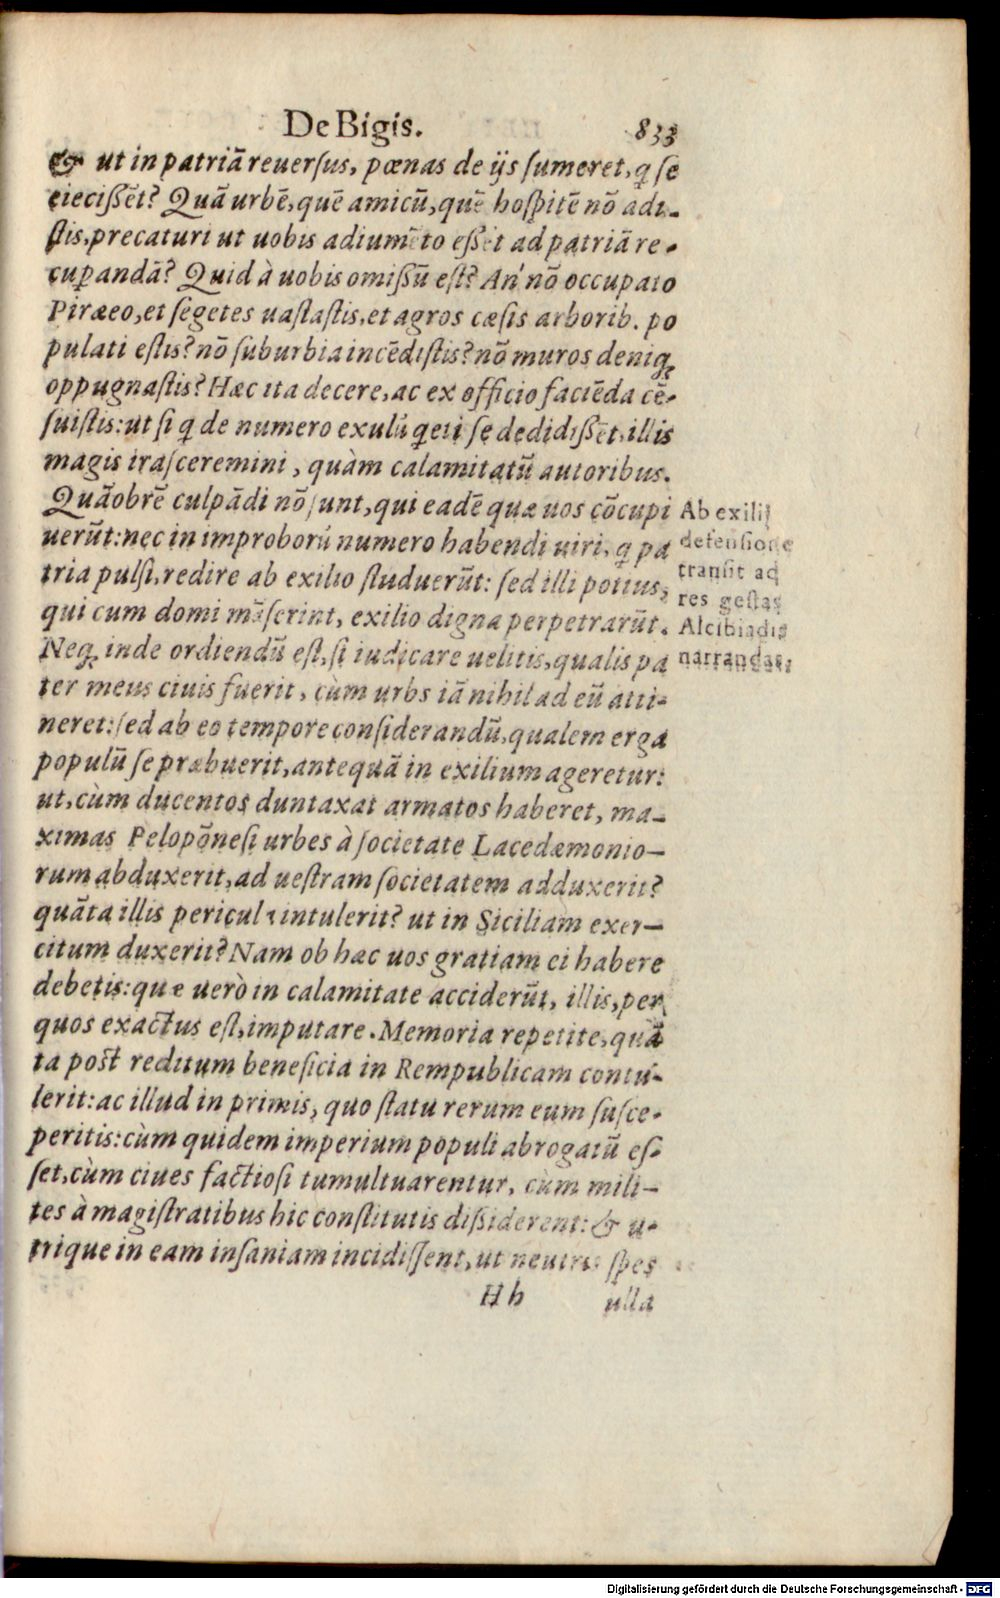 De Bigis. 833
& ut in patriā reuersus, pœnas de ijs sumeret, ꝗ se
eiecissēt? Quā urbē, quē amicū, quē hospitē nō adi-
stis, precaturi ut uobis adiumēto essēt ad patriā re-
cuꝑandā? Quid à uobis omissū est? An' nō occupato
Piræeo, et segetes uastastis, et agros cæsis arborib. po
pulati estis? nō suburbia incēdistis? nō muros deniqꝫ
oppugnastis? Hæc ita decere, ac ex officio faciēda cē-
suistis: ut si ꝗ de numero exulū ꝗeti se dedidissēt, illis
magis irasceremini, quàm calamitatū autoribus.
Quāobrē culpādi nō sunt, qui eadē quæ uos cōcupi
uerūt: nec in improborū numero habendi uiri, ꝗ pa
tria pulsi, redire ab exilio studuerūt: sed illi potius,
qui cum domi māserint, exilio digna perpetrarūt.
Neqꝫ inde ordiendū est, si iudicare uelitis, qualis pa
ter meus ciuis fuerit, cùm urbs iā nihil ad eū atti-
neret: sed ab eo tempore considerandū, qualem erga
populū se præbuerit, antequā in exilium ageretur:
ut, cùm ducentos duntaxat armatos haberet, ma-
ximas Pelopōnesi urbes à societate Lacedæmonio-
rum abduxerit, ad uestram societatem adduxerit?
quāta illis pericula intulerit? ut in Siciliam exer-
citum duxerit? Nam ob hæc uos gratiam ei habere
debetis: quæ uerò in calamitate acciderūt, illis, per
quos exactus est, imputare. Memoria repetite, quā
ta post reditum beneficia in Rempublicam contu-
lerit: ac illud in primis, quo statu rerum eum susce-
peritis: cùm quidem imperium populi abrogatū es-
set, cùm ciues factiosi tumultuarentur, cùm mili-
tes à magistratibus hic constitutis dissiderent: & u-
trique in eam insaniam incidissent, ut neutris spes
Hh ulla
Ab exilij
defensione
transit ad
res gestas
Alcibiadis
narrandas.
Digitalisierung gefördert durch die Deutsche Forschungsgemeinschaft - DFG